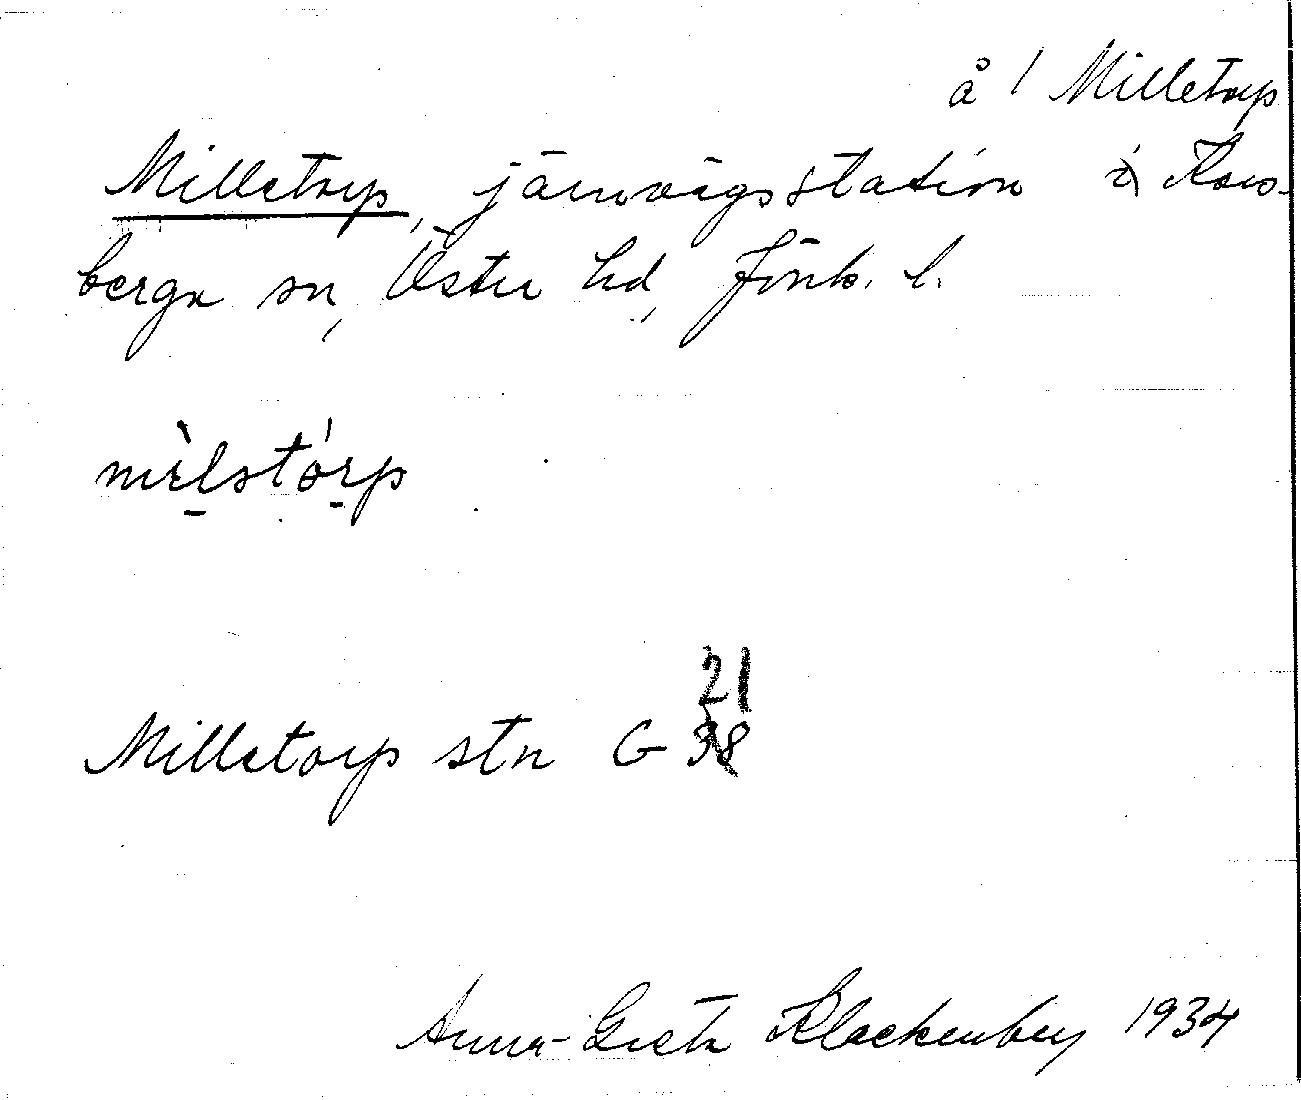 å 1 Milletorp
Milletorp, järnvägsstation i Kors-
berga sn, Östra hd, Jönk. l.
mìlstórp
Milletorp stn G 21
38
Anna-Greta Klackenberg 1934